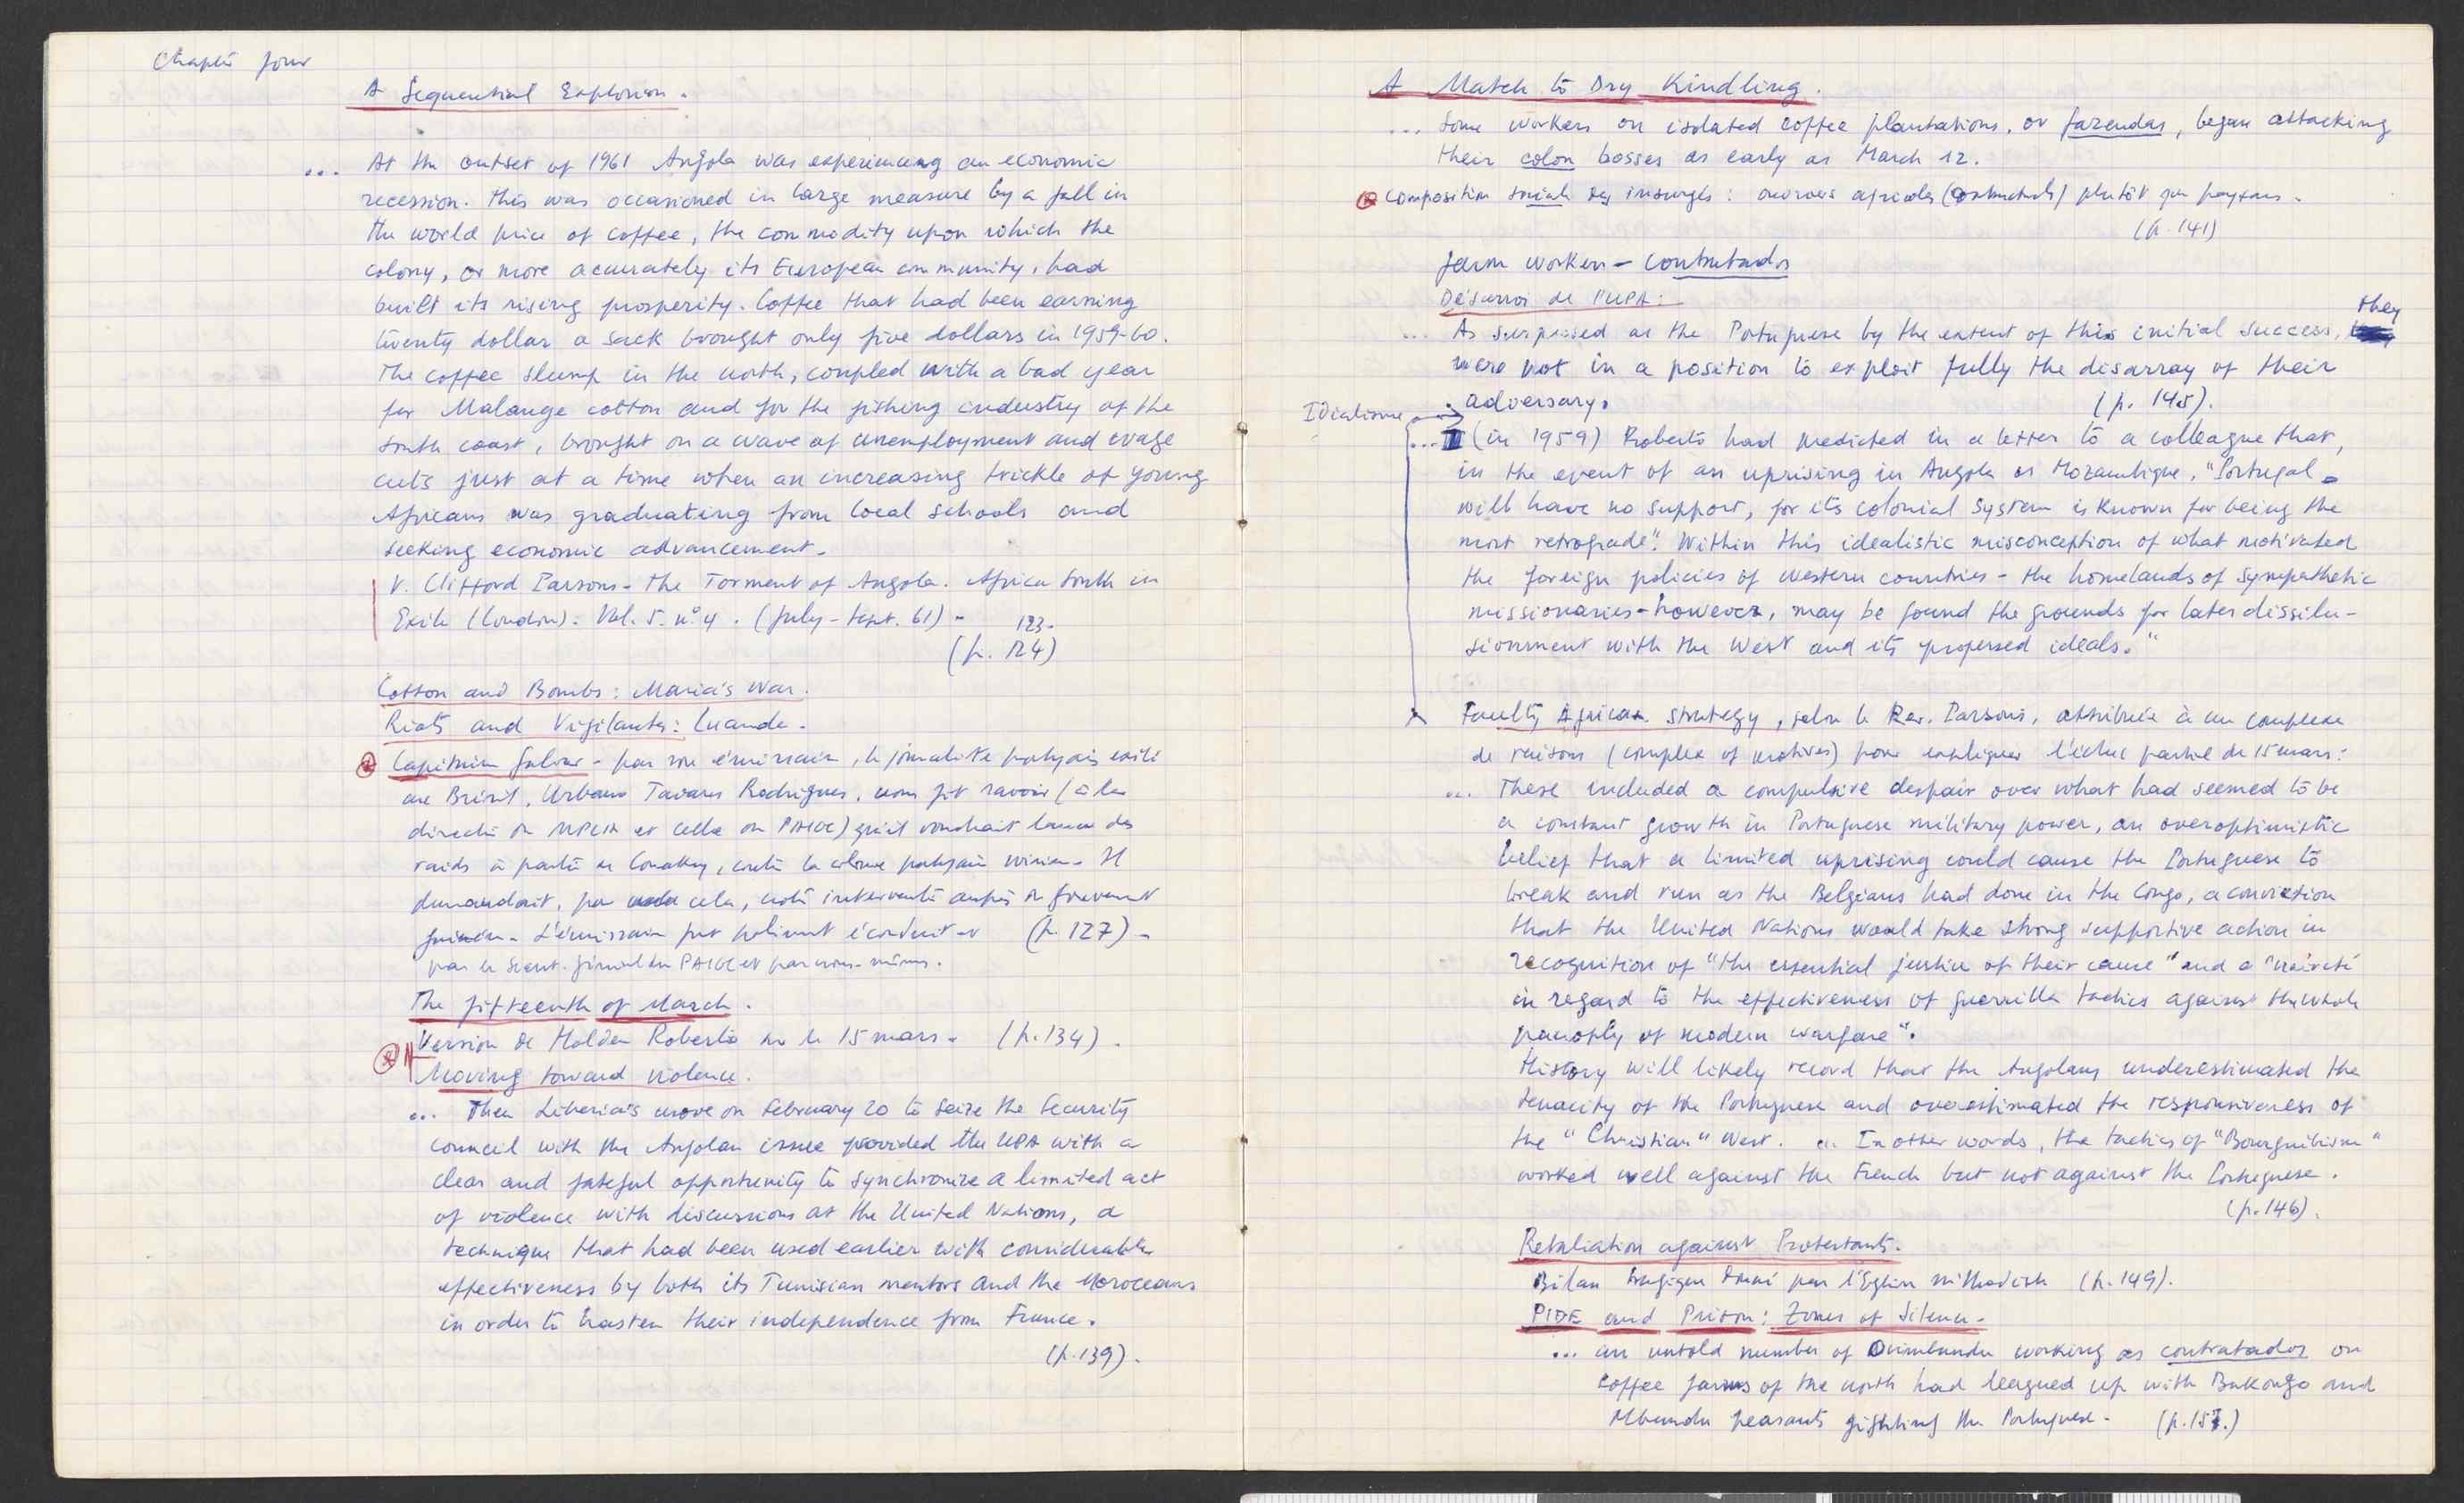 Chapter four
A Sequential Explosion.
... At the outset of 1961 Angola was experiencing an economic
recession. This was occasioned in large measure by a fall in
the world price of coffee, the commodity upon which the
colony, or more accurately its European community, had
built its rising prosperity. Coffee that had been earning
twenty dollar a sack brought only five dollars in 1959-60.
The coffee slump in the north, coupled with a bad year
for Malange cotton and for the fishing industry of the
south coast, brought on a wave of unemployment and wage
cuts just at a time when an increasing trickle of young
Africans was graduating from local schools and
seeking economic advancement.
V. Clifford Parsons - The Torment of Angola. Africa South in
Exile (London). Vol. 5. nº 4. (July-Sept. 61) -
123-
(p. 124)
Cotton and Bombs: Maria's War.
Riots and Vigilantes: Luanda.
Capitaine Galvao - par son émissaire, le journaliste portugais exilé
au Brésil, Urbano Tavares Rodrigues, nous fit savoir (à la
direction du MPLA et celle du PAIGC) qu'il voudrait lancer des
raids à partir de Conakry, contre la colonie portugaise voisine. Il
demandait, pour cela, notre intervention auprès du gouvernement
guinéen. L'émissaire fut poliment éconduit (p. 127) -
par le Secrt. général du PAIGC et par nous-mêmes.
The fifteenth of March.
Version de Holden Roberto sur le 15 mars. (p. 134).
Moving toward violence.
... Then Liberia's move on February 20 to seize the Security
Council with the Angolan issue provided the UPA with a
clear and fateful opportunity to synchronize a limited act
of violence with discussions at the United Nations, a
technique that had been used earlier with considerable
effectiveness by both its Tunisian mentors and the Moroccans
in order to hasten their independence from France.
(p. 139).
A Match to Dry Kindling.
... Some workers on isolated coffee plantations, or fazendas, began attacking
their colon bosses as early as March 12.
Composition sociale des insurgés: ouvriers agricoles (contratados) plutôt que paysans.
(p. 141)
farm workers - contratados
Désarroi de l'UPA:
... As surprised as the Portuguese by the extent of this initial success, they
were not in a position to exploit fully the disarray of their
adversary. (p. 145).
Idéalisme
... (in 1959) Roberto had predicted in a letter to a colleague that,
in the event of an uprising in Angola or Mozambique, "Portugal
will have no support, for its colonial system is known for being the
most retrograde". Within this idealistic misconception of what motivated
the foreign policies of western countries - the homelands of sympathetic
missionaries - however, may be found the grounds for later dissilu-
sionment with the West and its professed ideals."
Faulty African strategy, selon le Rev. Parsons, attribuée à un complexe
de raisons (complex of motives) pour expliquer l'échec partiel du 15 mars:
... These included a compulsive despair over what had seemed to be
a constant growth in Portuguese military power, an overoptimistic
belief that a limited uprising could cause the Portuguese to
break and run as the Belgians had done in the Congo, a conviction
that the United Nations would take strong supportive action in
recognition of "the essential justice of their cause" and a "naïveté
in regard to the effectiveness of guerrilla tactics against the whole
panoply of modern warfare".
History will likely record that the Angolans underestimated the
tenacity of the Portuguese and overestimated the responsiveness of
the "Christian" West. ... In other words, the tactics of "Bourguibism"
worked well against the French but not against the Portuguese.
(p. 146).
Retaliation against Protestants.
Bilan tragique donné par l'Eglise méthodiste (p. 149).
PIDE and Prison: Zones of Silence.
... an untold number of Ovimbundu working as contratados on
coffee farms of the north had leagued up with Bakongo and
Mbundu peasants fighting the Portuguese. (p. 15 .)